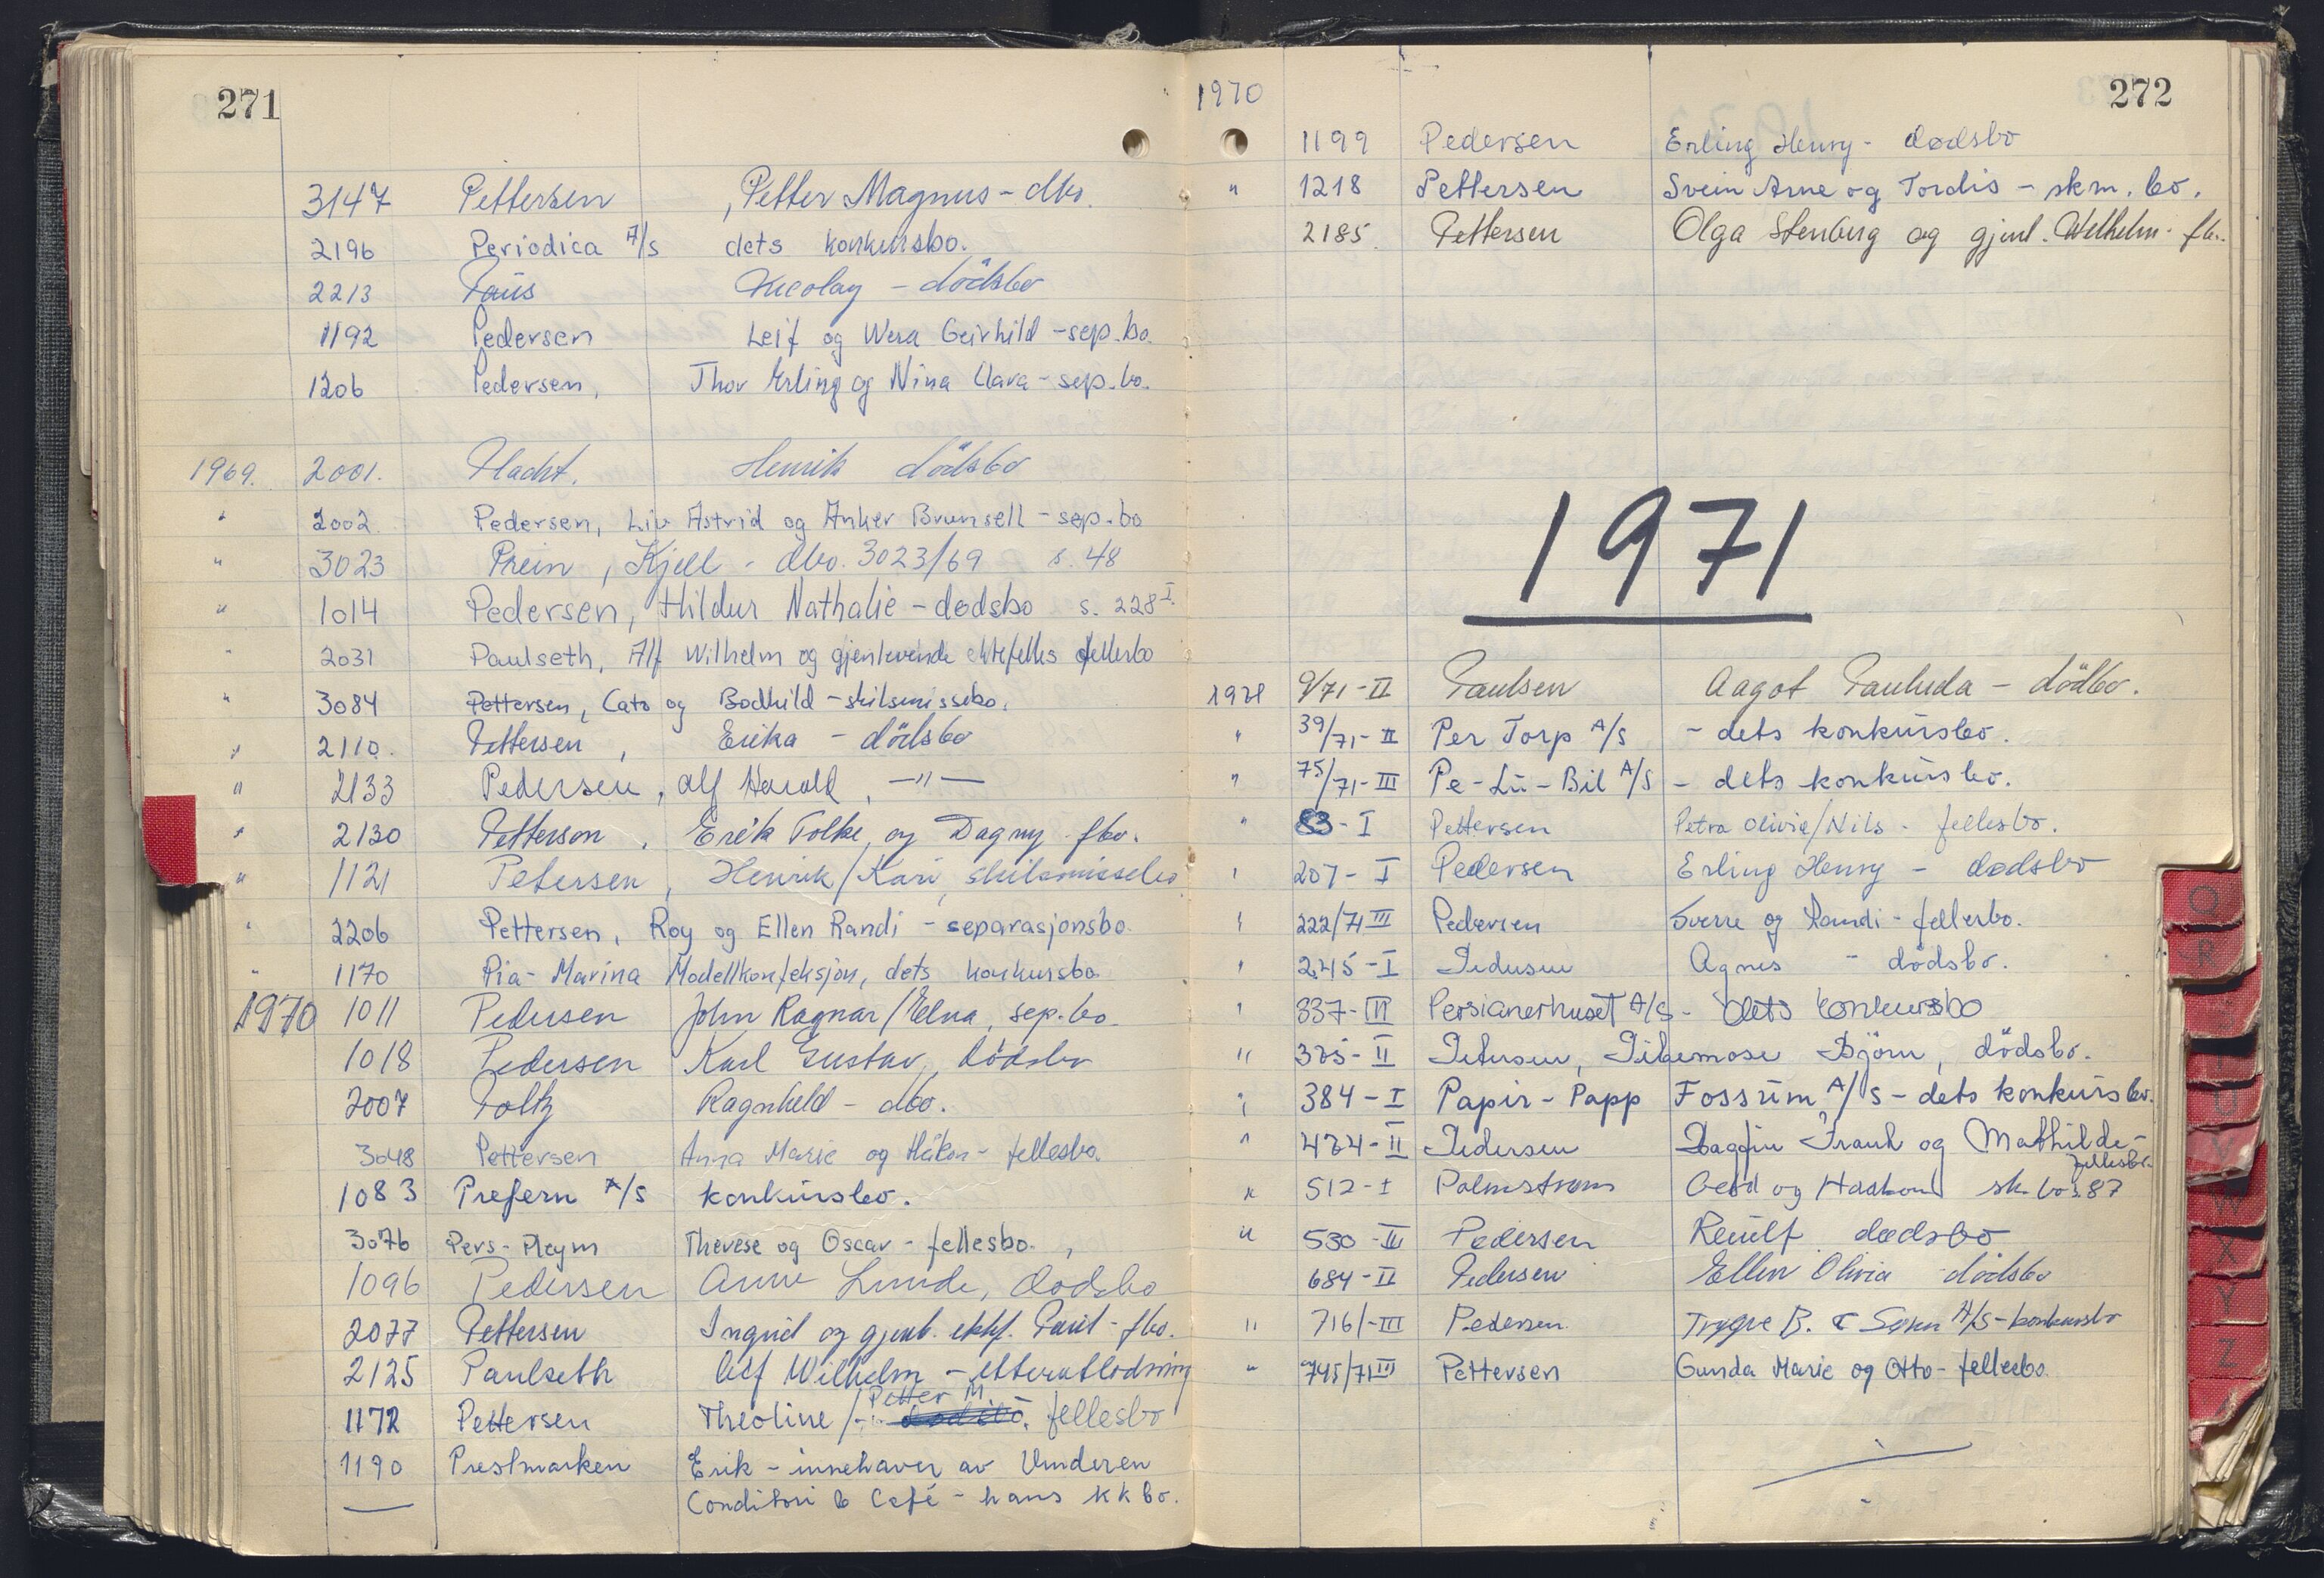 271
3147 Pettersen, Petter Magnus - dbo.
2196 Periodica A/S dets konkursbo.
2213 Paus Nicolay - dödsbo
1192 Pedersen Leif og Wera Geirhild - sep.bo.
1206 Pedersen, Thor Erling og Nina Clara - sep.bo.
1969. 2001. Henrik dödsbo
" 2002. Pedersen, Liv Astrid og Anker Brunsell - sep.bo
" 3023 Prein, Kjell - dbo. 3023/69 s. 48
" 1014 Pedersen, Hildur Nathalie - dødsbo s. 228 I.
" 2031 Paulseth, Alf Wilhelm og gjenlevende ektefelles fellesbo
" 3084 Pettersen, Cato og Bodhild - skilsmissebo.
" 2110. Pettersen, Erika - dödsbo
" 2133 Pedersen, Alf Harald, —"—
" 2130 Petterson, Erik Folke og Dagny - fbo.
" 1121 Petersen, Henrik/Kari, skilsmissebo
" 2206 Pettersen, Roy og Ellen Randi - separasjonsbo.
" 1170 Pia-Marina Modellkonfeksjon, dets konkursbo.
1970 1011 Pedersen John Ragnar/Elna, sep.bo.
1018 Pedersen Karl Gustav, dödsbo
2007 Poltz Ragnhild - dbo.
3048 Pettersen Anna Marie og Håkon - fellesbo.
1083 Prefern A/S konkursbo.
3076 Pers-Pleym Therese og Oscar - fellesbo.
1096 Pedersen Anne Lunde, dødsbo
2077 Pettersen Ingrid og gjenl. ektf. - fbo.
2125 Paulseth Alf Wilhelm - etterutlodning
Petter M.
1172 Pettersen Theoline/ dødsbo. fellesbo
1190 Prestmarken Erik - innehaver av Vinderen
Conditori & Café - hans kkbo.
272
1970
1199 Pedersen Erling Henry - dødsbo
" 1218 Pettersen Svein Arne og Tordis - skm.bo.
2185. Pettersen Olga Stenberg og gjenl. Wilhelm - fbo.
1971
1971 9/71-II Paulsen Aagot - dödbo.
" 39/71-II Per Torp A/S - dets konkursbo.
" 75/71-III Pe-Lu-Bil A/S - dets konkursbo.
" 83-I Pettersen Petra Olivie/Nils - fellesbo.
" 207-I Pedersen Erling Henry - dødsbo
" 222/71 III Pedersen Sverre og Randi - fellesbo.
" 245-I Pedersen Agnes - dødsbo.
" 337-III Persianerhuset A/S - dets konkursbo
" 375-II Petersen, Björn, dödsbo.
" 384-I Papir-Papp Fossum A/S - dets konkursbo.
" 434-II Pedersen Dagfin Frank og Mathilde -
fellesbo.
" 512-I Palmstrøm Gerd og Haakon sk.bo s.87
" 530-III Pedersen dødsbo
684-II Pedersen Ellen Olivia dödsbo
" 716/-III Pedersen Trygve B. & Sønn A/S - konkursbo
" 745/71 III Pettersen Gunda Marie og Otto - fellesbo.
Q
R
U
V
W
X
Y
Z